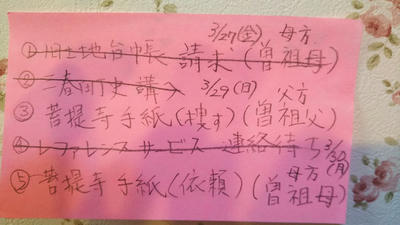 3/27(金) 母方
① 旧土地台帳 請求 (曽祖母)
② 三春町史 講 3/29(日) 父方
③ 菩提寺 手紙 (捜す) (曽祖父)
④ レファレンスサービス 連絡待ち 3/30(月)
母方
⑤ 菩提寺 手紙 (依頼) (曽祖母)